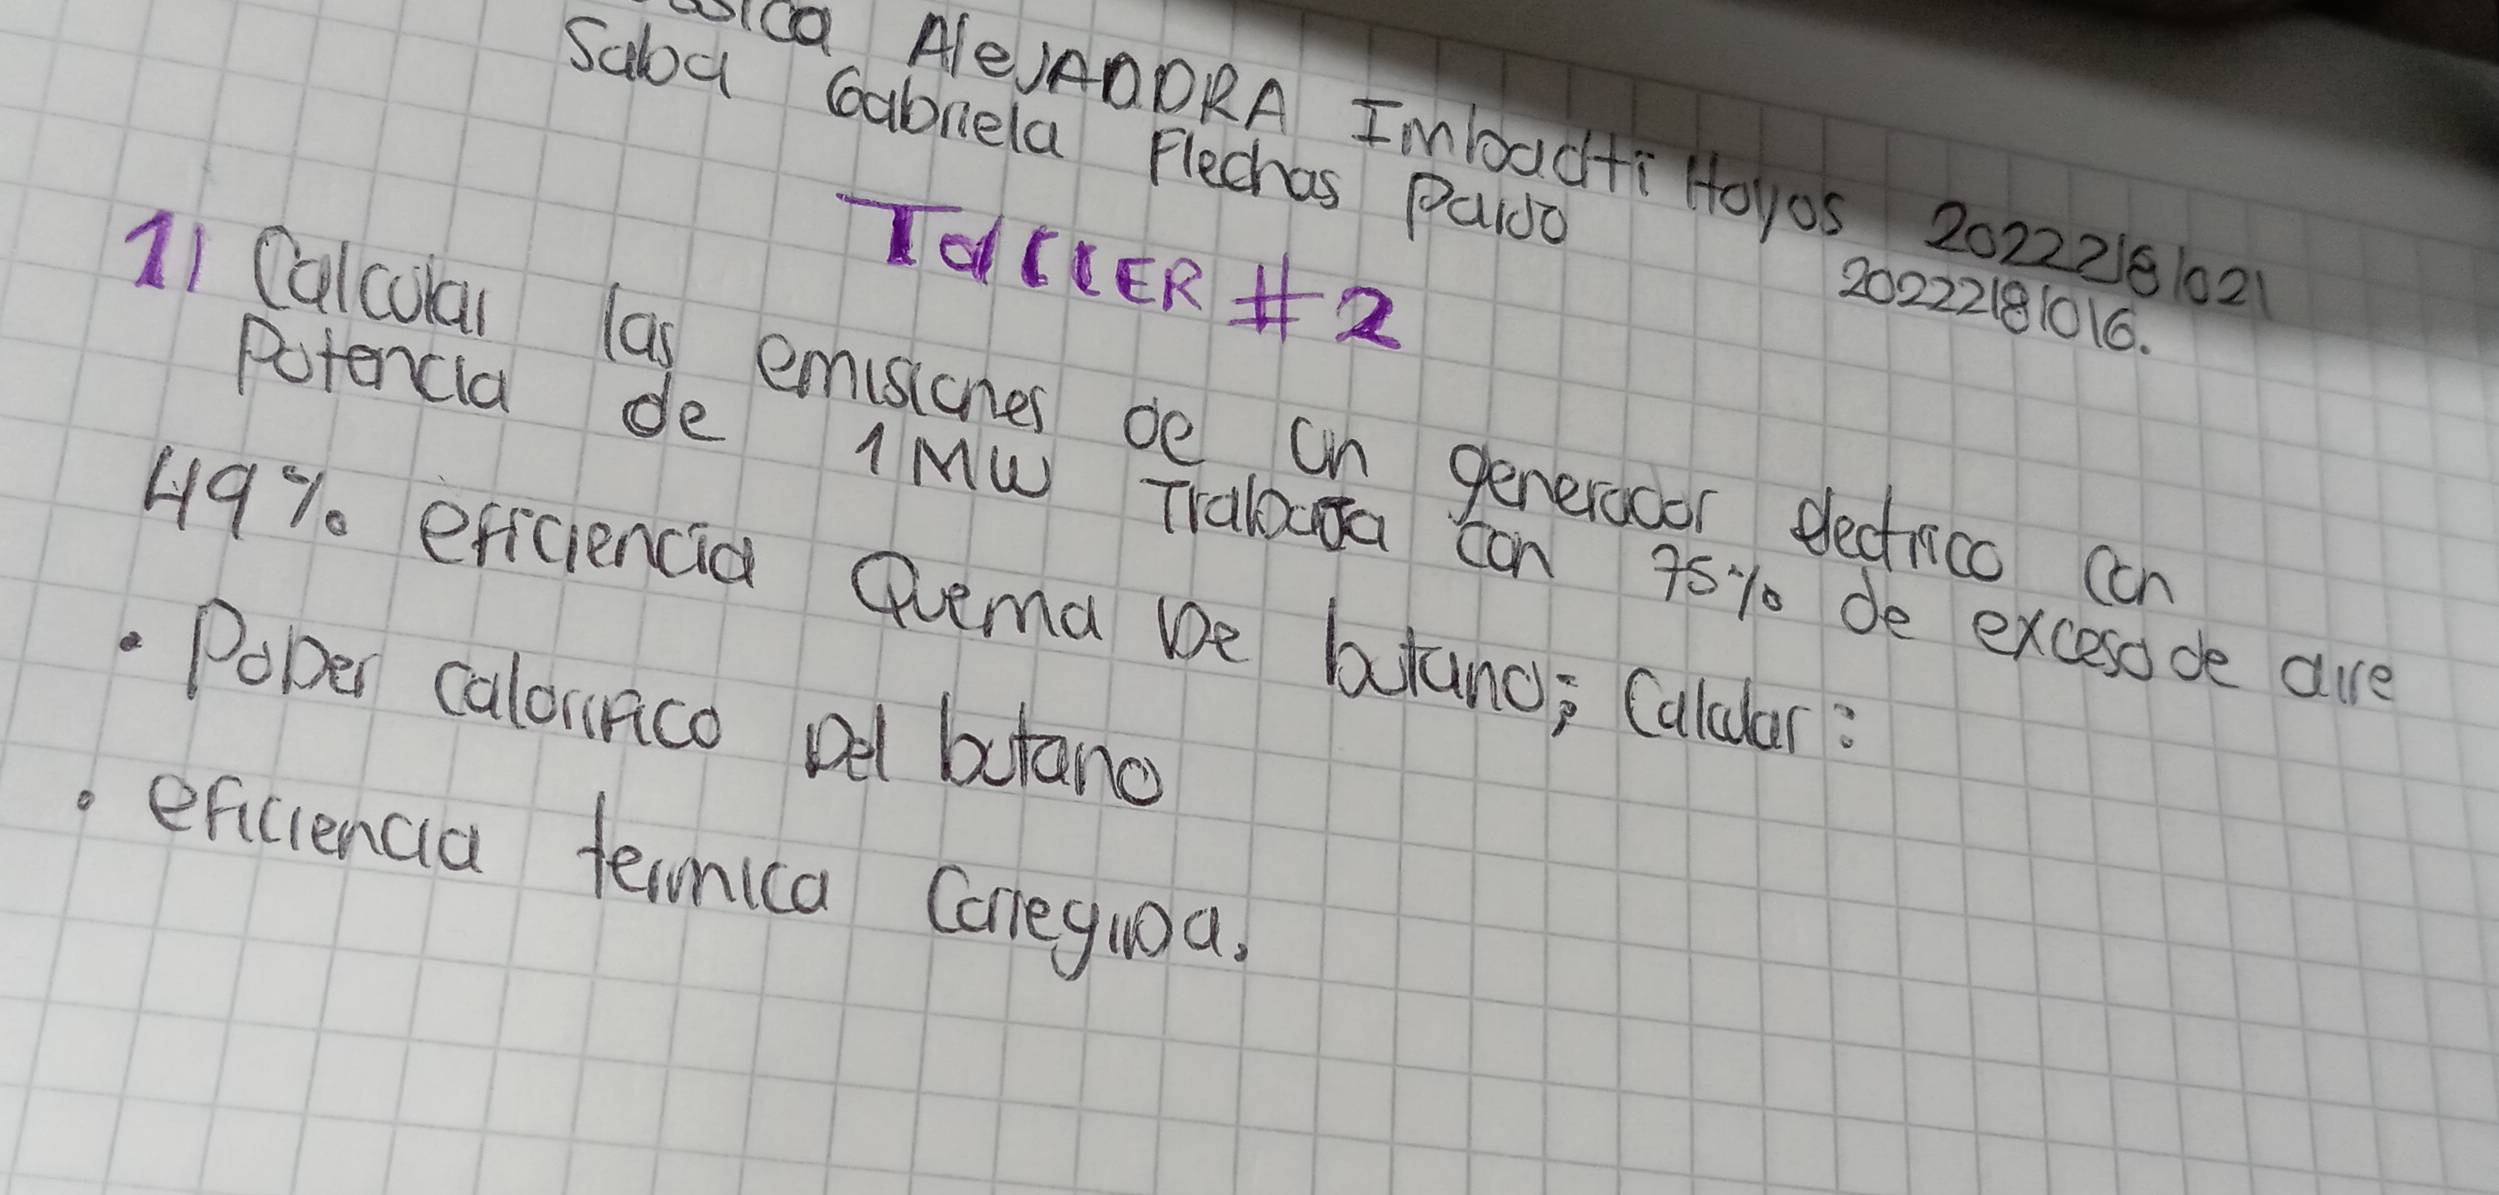 Alejandra Imbachi Hoyos 20222181021
Saba Gabriela Flechas Pardo 20222181016.
TallER #2
1) Calcular las emisiones de un generador electrico con
Potencia de 1 MW Trabaja con 75% de exceso de aire
49% eficiencia Quema De butano; Calcular:
• PoDer calorifico Del butano
• eficiencia termica CorregiDa.